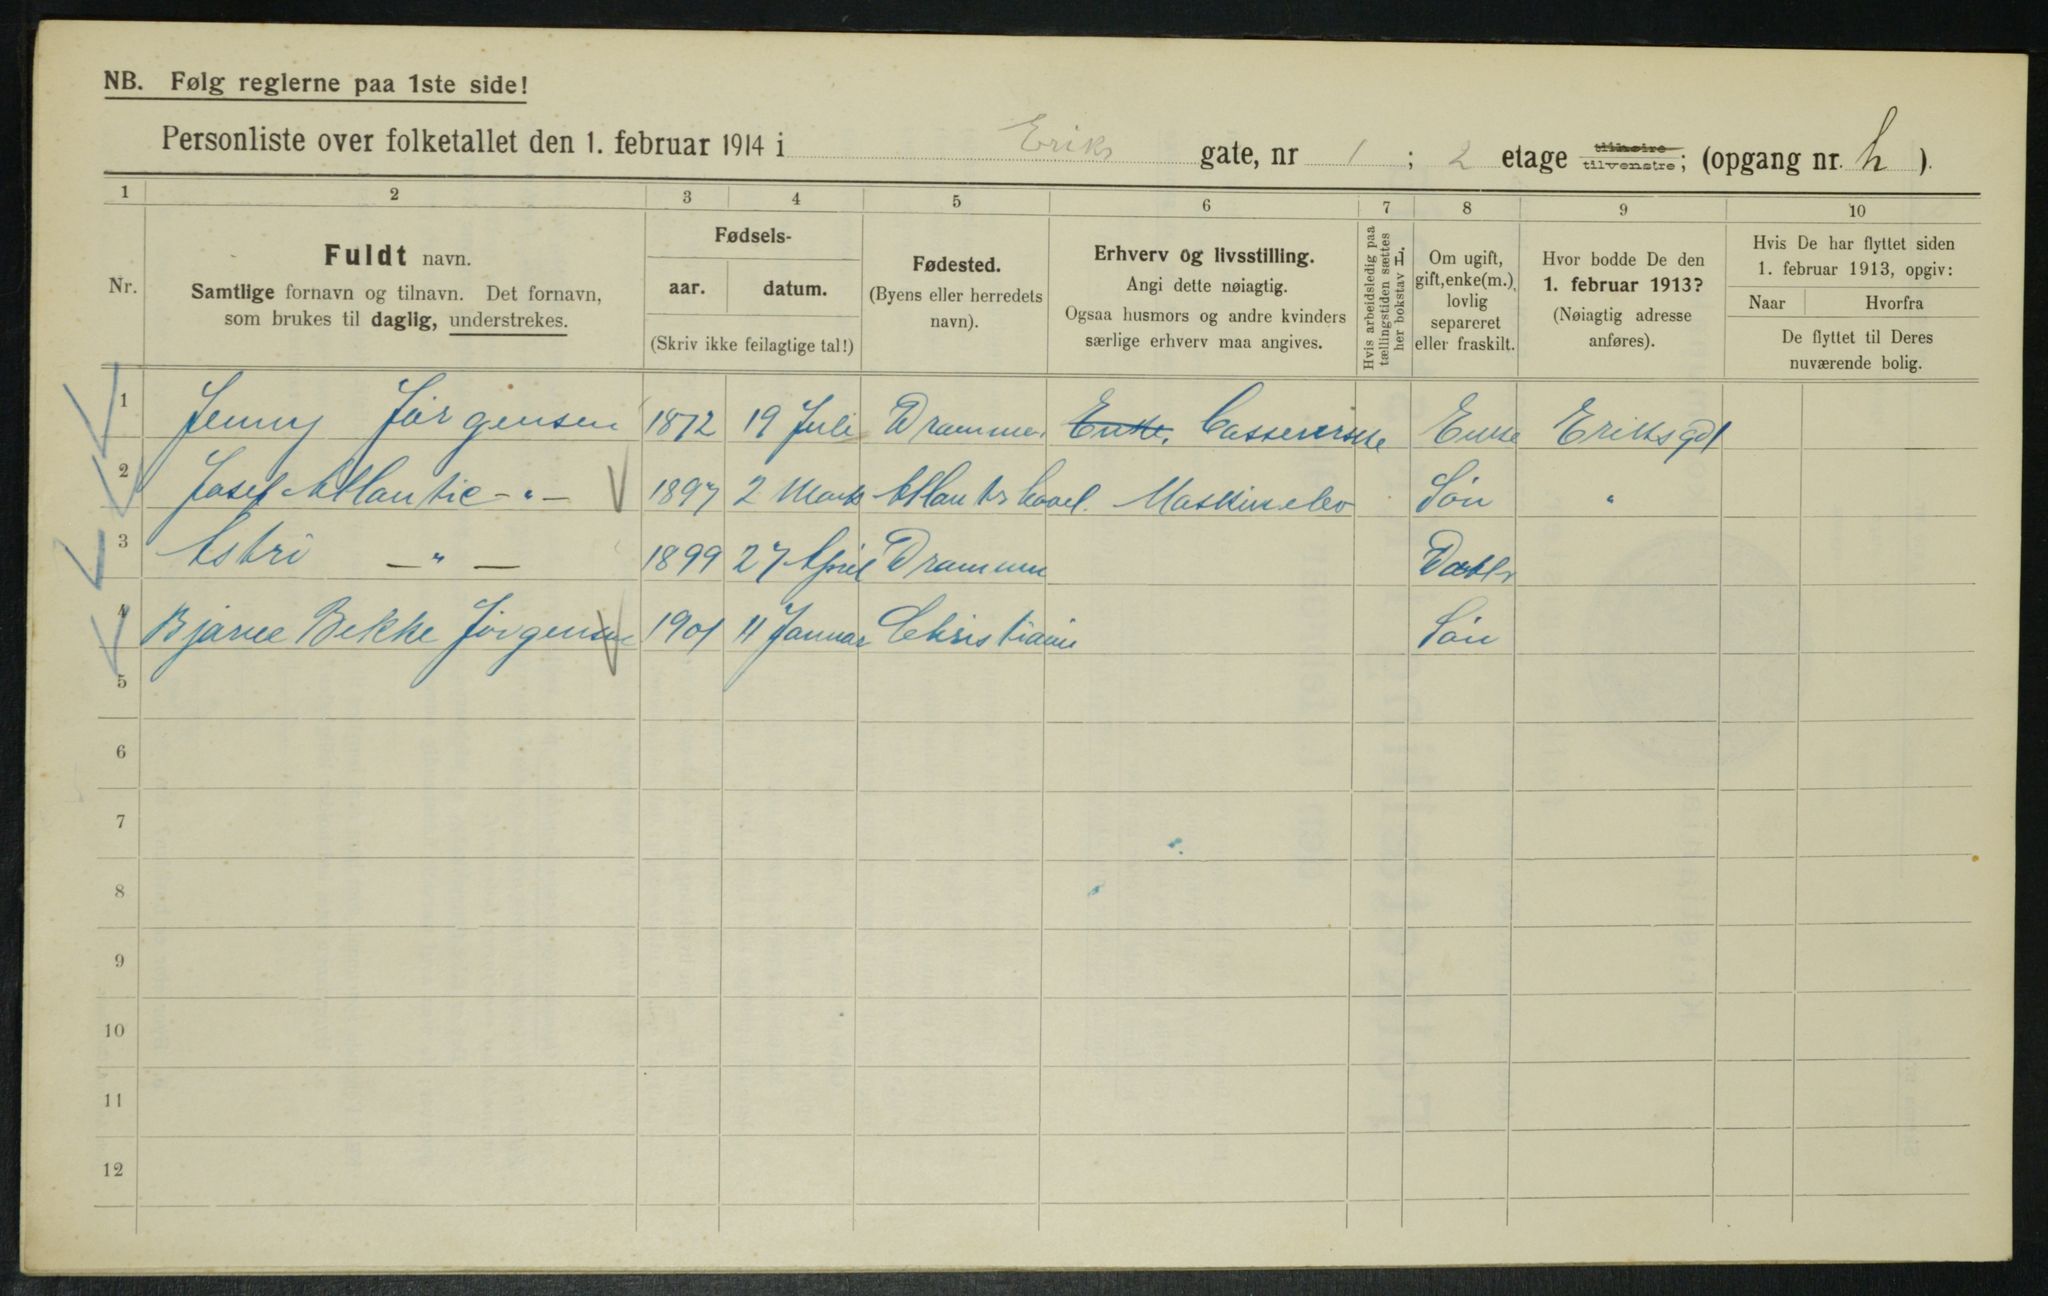 NB. Følg reglerne paa 1ste side!
Personliste over folketallet den 1. februar 1914 i Eriks gate, nr 1 ; 2 etage tilhøire tilvenstre; (opgang nr. h ).
1 2 3 4 5 6 7 8 9 10
Nr.
Fuldt navn.
Samtlige fornavn og tilnavn. Det fornavn,
som brukes til daglig, understrekes.
Fødsels-
aar. datum.
(Skriv ikke feilagtige tal!)
Fødested.
(Byens eller herredets
navn).
Erhverv og livsstilling.
Angi dette nøiagtig.
Ogsaa husmors og andre kvinders
særlige erhverv maa angives.
Hvis arbeidsledig paa
tællingstiden sættes
her bokstav L.
Om ugift,
gift, enke(m.),
lovlig
separeret
eller fraskilt.
Hvor bodde De den
1. februar 1913?
(Nøiagtig adresse
anføres).
Hvis De har flyttet siden
1. februar 1913, opgiv:
Naar Hvorfra
De flyttet til Deres
nuværende bolig.
1 Jenny Jørgensen 1872 19 Juli Drammen Enke. Cassererske Enke Eriksgd 1
2 Josef Atlantic -"- 1897 2 Marts Atlanterhavet. Maskinelev Søn "
3 Astri -"- 1899 27 April Drammen Datter
4 Bjarne Bekke Jørgensen 1901 11 Januar Christiania Søn
5
6
7
8
9
10
11
12